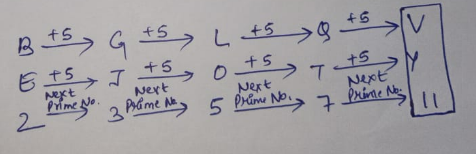 B +5 G +5 L +5 Q +5 V
E +5 J +5 O +5 T +5 Y
Next Prime No. Next Prime No. Next Prime No. Next Prime No.
2 3 5 7 11